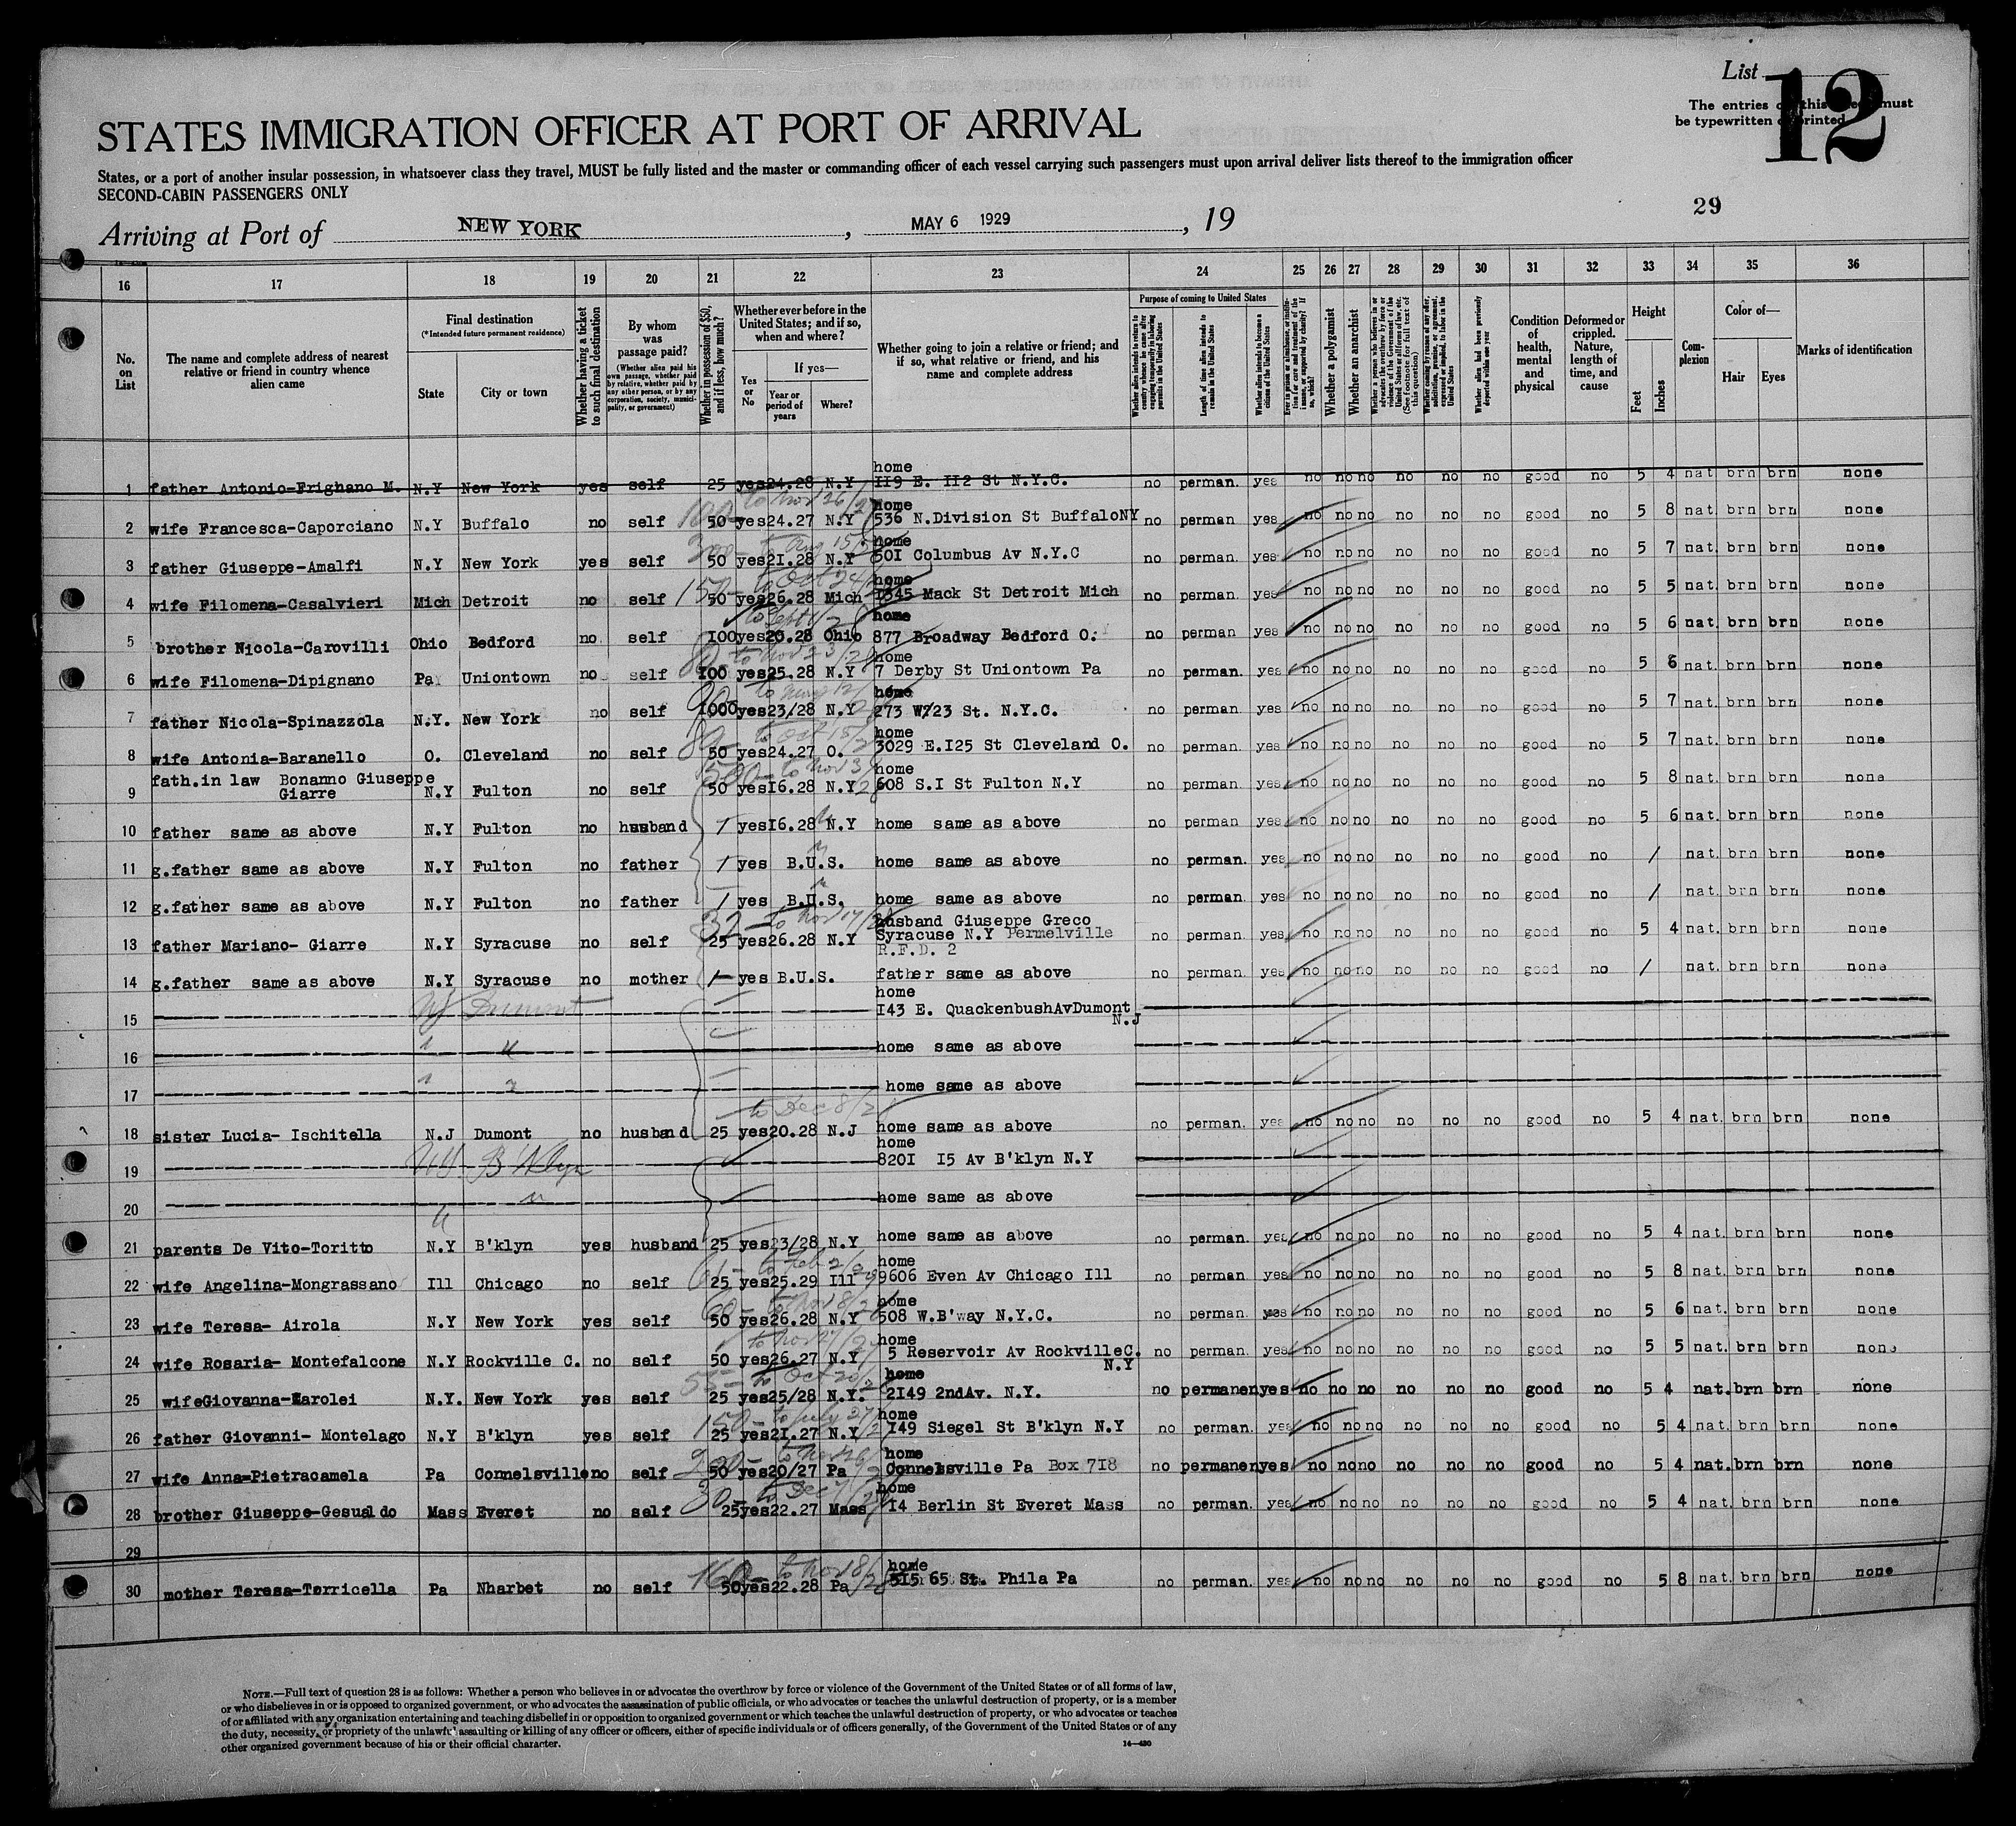 List 12
The entries on this sheet must
be typewritten or printed
STATES IMMIGRATION OFFICER AT PORT OF ARRIVAL
States, or a port of another insular possession, in whatsoever class they travel, MUST be fully listed and the master or commanding officer of each vessel carrying such passengers must upon arrival deliver lists thereof to the immigration officer
SECOND-CABIN PASSENGERS ONLY
29
Arriving at Port of NEW YORK, MAY 6 1929, 19
16 17 18 19 20 21 22 23 24 25 26 27 28 29 30 31 32 33 34 35 36
No. on List
The name and complete address of nearest relative or friend in country whence alien came
Final destination
(*Intended future permanent residence)
State
City or town
Whether having a ticket to such final destination
By whom was passage paid?
(Whether alien paid his own passage, whether paid by relative, whether paid by any other person, or by any corporation, society, municipality, or government)
Whether in possession of $50, and if less, how much?
Whether ever before in the United States; and if so, when and where?
Yes or No
If yes—
Year or period of years
Where?
Whether going to join a relative or friend; and if so, what relative or friend, and his name and complete address
Purpose of coming to United States
Whether alien intends to return to country whence he came after engaging temporarily in laboring pursuits in the United States
Length of time alien intends to remain in the United States
Whether alien intends to become a citizen of the United States
Whether a polygamist
Whether an anarchist
Whether alien had been previously deported within one year
Condition of health, mental and physical
Deformed or crippled. Nature, length of time, and cause
Height
Feet
Inches
Complexion
Color of—
Hair
Eyes
Marks of identification
home
1 father Antonio-Frighano M. N.Y New York yes self 25 yes 24.28 N.Y 119 E. 112 St N.Y.C. no perman. yes no no no no no no good no 5 4 nat. brn brn none
to Nov 26/27
home
2 wife Francesca-Caporciano N.Y Buffalo no self 50 yes 24.27 N.Y 536 N.Division St BuffaloNY no perman yes no no no no no no good no 5 8 nat. brn brn none
home
3 father Giuseppe-Amalfi N.Y New York yes self 50 yes 21.28 N.Y 501 Columbus Av N.Y.C no perman. yes no no no no no no good no 5 7 nat. brn brn none
150- to Oct 24
home
4 wife Filomena-Casalvieri Mich Detroit no self 50 yes 26.28 Mich 1545 Mack St Detroit Mich no perman. yes no no no no no no good no 5 5 nat. brn brn none
home
5 brother Nicola-Carovilli Ohio Bedford no self 100 yes 20.28 Ohio 877 Broadway Bedford O. no perman yes no no no no no no good no 5 6 nat. brn brn none
to Nov 23/28
home
6 wife Filomena-Dipignano Pa Uniontown no self 100 yes 25.28 N.Y 7 Derby St Uniontown Pa no perman. yes no no no no no no good no 5 6 nat. brn brn none
home
7 father Nicola-Spinazzola N.Y. New York no self 1000 yes 23/28 N.Y 273 W/23 St. N.Y.C. no perman. yes no no no no no no good no 5 7 nat. brn brn none
80- to Oct 15/
home
8 wife Antonia-Baranello O. Cleveland no self 50 yes 24.27 O. 3029 E.125 St Cleveland O. no perman. yes no no no no no no good no 5 7 nat. brn brn none
500- to Nov 3/28
home
9 fath.in law Bonanno Giuseppe Giarre N.Y Fulton no self 50 yes 16.28 N.Y 608 S.1 St Fulton N.Y no perman. yes no no no no no no good no 5 8 nat. brn brn none
10 father same as above N.Y Fulton no husband / yes 16.28 N.Y home same as above no perman yes no no no no no no good no 5 6 nat. brn brn none
11 g.father same as above N.Y Fulton no father / yes B.U.S. home same as above no perman. yes no no no no no no good no / nat. brn brn none
12 g.father same as above N.Y Fulton no father / yes B.U.S. home same as above no perman. yes no no no no no no good no / nat. brn brn none
32- to Nov 17/28
husband Giuseppe Greco
13 father Mariano- Giarre N.Y Syracuse no self 25 yes 26.28 N.Y Syracuse N.Y Permelville no perman. yes no no no no no no good no 5 4 nat. brn brn none
R.F.D. 2
14 g.father same as above N.Y Syracuse no mother / yes B.U.S. father same as above no perman. yes no no no no no no good no / nat. brn brn none
home
15 NJ Dumont 143 E. QuackenbushAvDumont
N.J
16 " " home same as above
17 " " home same as above
to Dec 8/28
18 sister Lucia- Ischitella N.J Dumont no husband 25 yes 20.28 N.J home same as above no perman. yes no no no no no no good no 5 4 nat. brn brn none
home
19 NY. B'klyn 8201 15 Av B'klyn N.Y
20 " home same as above
21 parents De Vito-Toritto N.Y B'klyn yes husband 25 yes 23/28 N.Y home same as above no perman. yes no no no no no no good no 5 4 nat. brn brn none
to Feb 2/29
home
22 wife Angelina-Mongrassano Ill Chicago no self 25 yes 25.29 Ill 9606 Even Av Chicago Ill no perman yes no no no no no no good no 5 8 nat. brn brn none
60- to Nov 8/28
home
23 wife Teresa- Airola N.Y New York yes self 50 yes 26.28 N.Y 508 W.B'way N.Y.C. no perman. yes no no no no no no good no 5 6 nat. brn brn none
to Nov 27/27
home
24 wife Rosaria- Montefalcone N.Y Rockville C. no self 50 yes 26.27 N.Y 5 Reservoir Av RockvilleC. no perman. yes no no no no no no good no 5 5 nat. brn brn none
N.Y
55- to Oct 20/28
home
25 wifeGiovanna-Karolei N.Y. New York yes self 25 yes 25/28 N.Y. 2149 2ndAv. N.Y. no permanen yes no no no no no no good no 5 4 nat. brn brn none
150- to July 27/
home
26 father Giovanni- Montelago N.Y B'klyn yes self 25 yes 21.27 N.Y 149 Siegel St B'klyn N.Y no perman. yes no no no no no no good no 5 4 nat. brn brn none
home
27 wife Anna-Pietracamela Pa Connelsville no self 50 yes 20/27 Pa Connelsville Pa Box 718 no permanen yes no no no no no no good no 5 4 nat. brn brn none
30- to Dec 7/27
home
28 brother Giuseppe-Gesualdo Mass Everet no self 25 yes 22.27 Mass 14 Berlin St Everet Mass no perman. yes no no no no no no good no 5 4 nat. brn brn none
29
160- to Nov 18/28
home
30 mother Teresa-Torricella Pa Nharbet no self 50 yes 22.28 Pa 515 65 St. Phila Pa no perman. yes no no no no no no good no 5 8 nat. brn brn none
NOTE.—Full text of question 28 is as follows: Whether a person who believes in or advocates the overthrow by force or violence of the Government of the United States or of all forms of law,
or who disbelieves in or is opposed to organized government, or who advocates the assassination of public officials, or who advocates or teaches the unlawful destruction of property, or is a member
of or affiliated with any organization entertaining and teaching disbelief in or opposition to organized government or which teaches the unlawful destruction of property, or who advocates or teaches
the duty, necessity, or propriety of the unlawful assaulting or killing of any officer or officers, either of specific individuals or of officers generally, of the Government of the United States or of any
other organized government because of his or their official character.
14—430